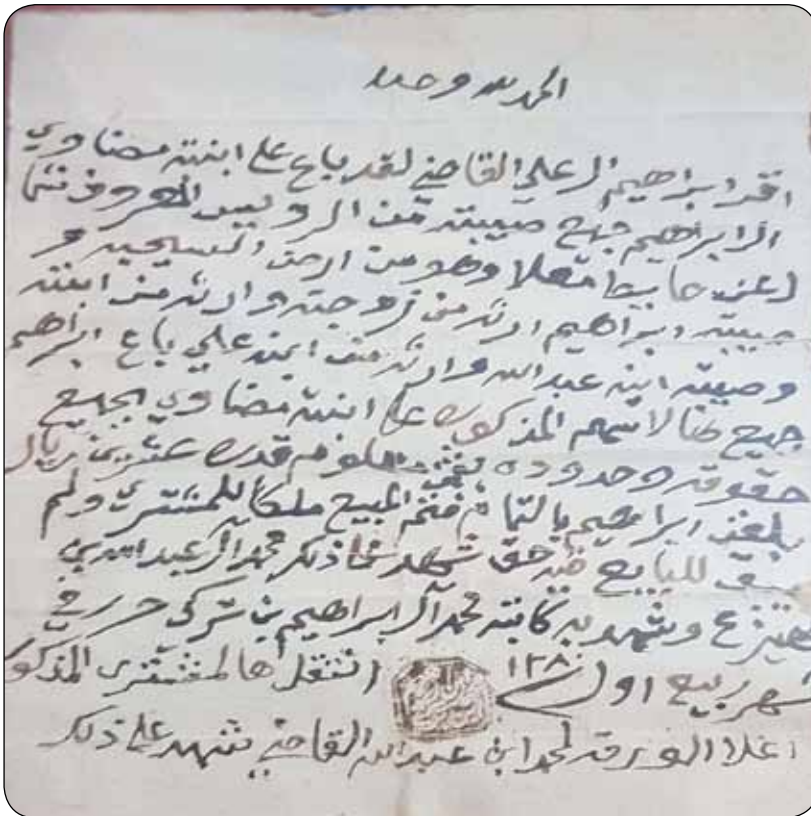 الحمد لله وحده
اقر ابراهيم العلي القاضي لقد باع على ابنته مضاوي
الابراهيم جميع صيبته من الرويس المعروف
وهو من ارض المسيحيه و
صيبته ابراهيم ارثه من زوجته وارثه من ابنته
وصيبته ابنه عبدالله وارثه من ابنه علي باع ابراهيم
جميع هالاسهم المذكوره على ابنته مضاوي بجميع
حقوقه وحدوده بثمن معلوم قدره عشرين ريال
بلغن ابراهيم بالتمام فتم المبيع ملكا للمشتري ولم
يبق للبايع فيه حق شهد على ذكر محمد العبدالله بن
هيزع وشهد به كاتبه محمد الابراهيم بن تركي حرر في
شهر ربيع اول ١٢٨٠ المشتري المذكور
اعلا الورقه لمحمد ابن عبدالله القاضي شهد على ذلك